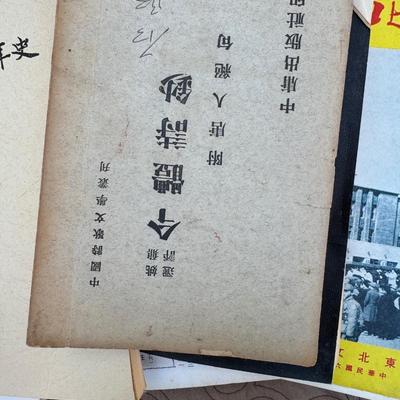 中國詩歌文學叢刊
姚鼐
評選
今體詩鈔
附唐人絕句
中庸出版社印
年史
東北文
中華民國六